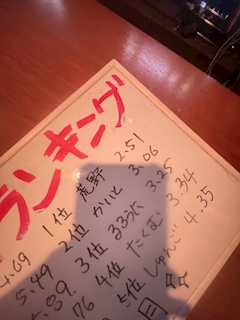 ランキング
1位 荒野 2.51
2位 かいと 3.06
3位 3.25
4位 たくむ 3.34
5位 しゅんじ 4.35
4.69
5.49
.89.
76